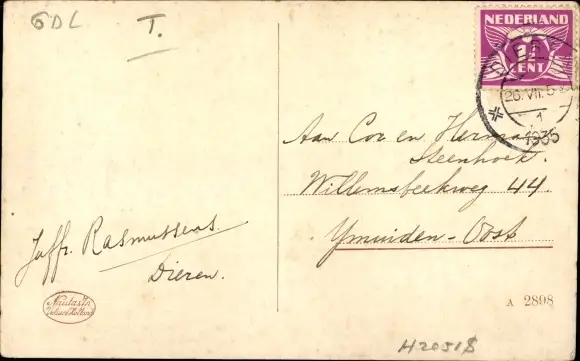 GDL
T.
NEDERLAND
1½
CENT
26.VII.5
1
1935
Aan Cor en Herman
Steenhoek.
Willemsbeekweg 44.
Ymuiden-Oost
Juffr. Rasmussens.
Dieren.
Nauta's
Velsen Holland
A 2808
H20518